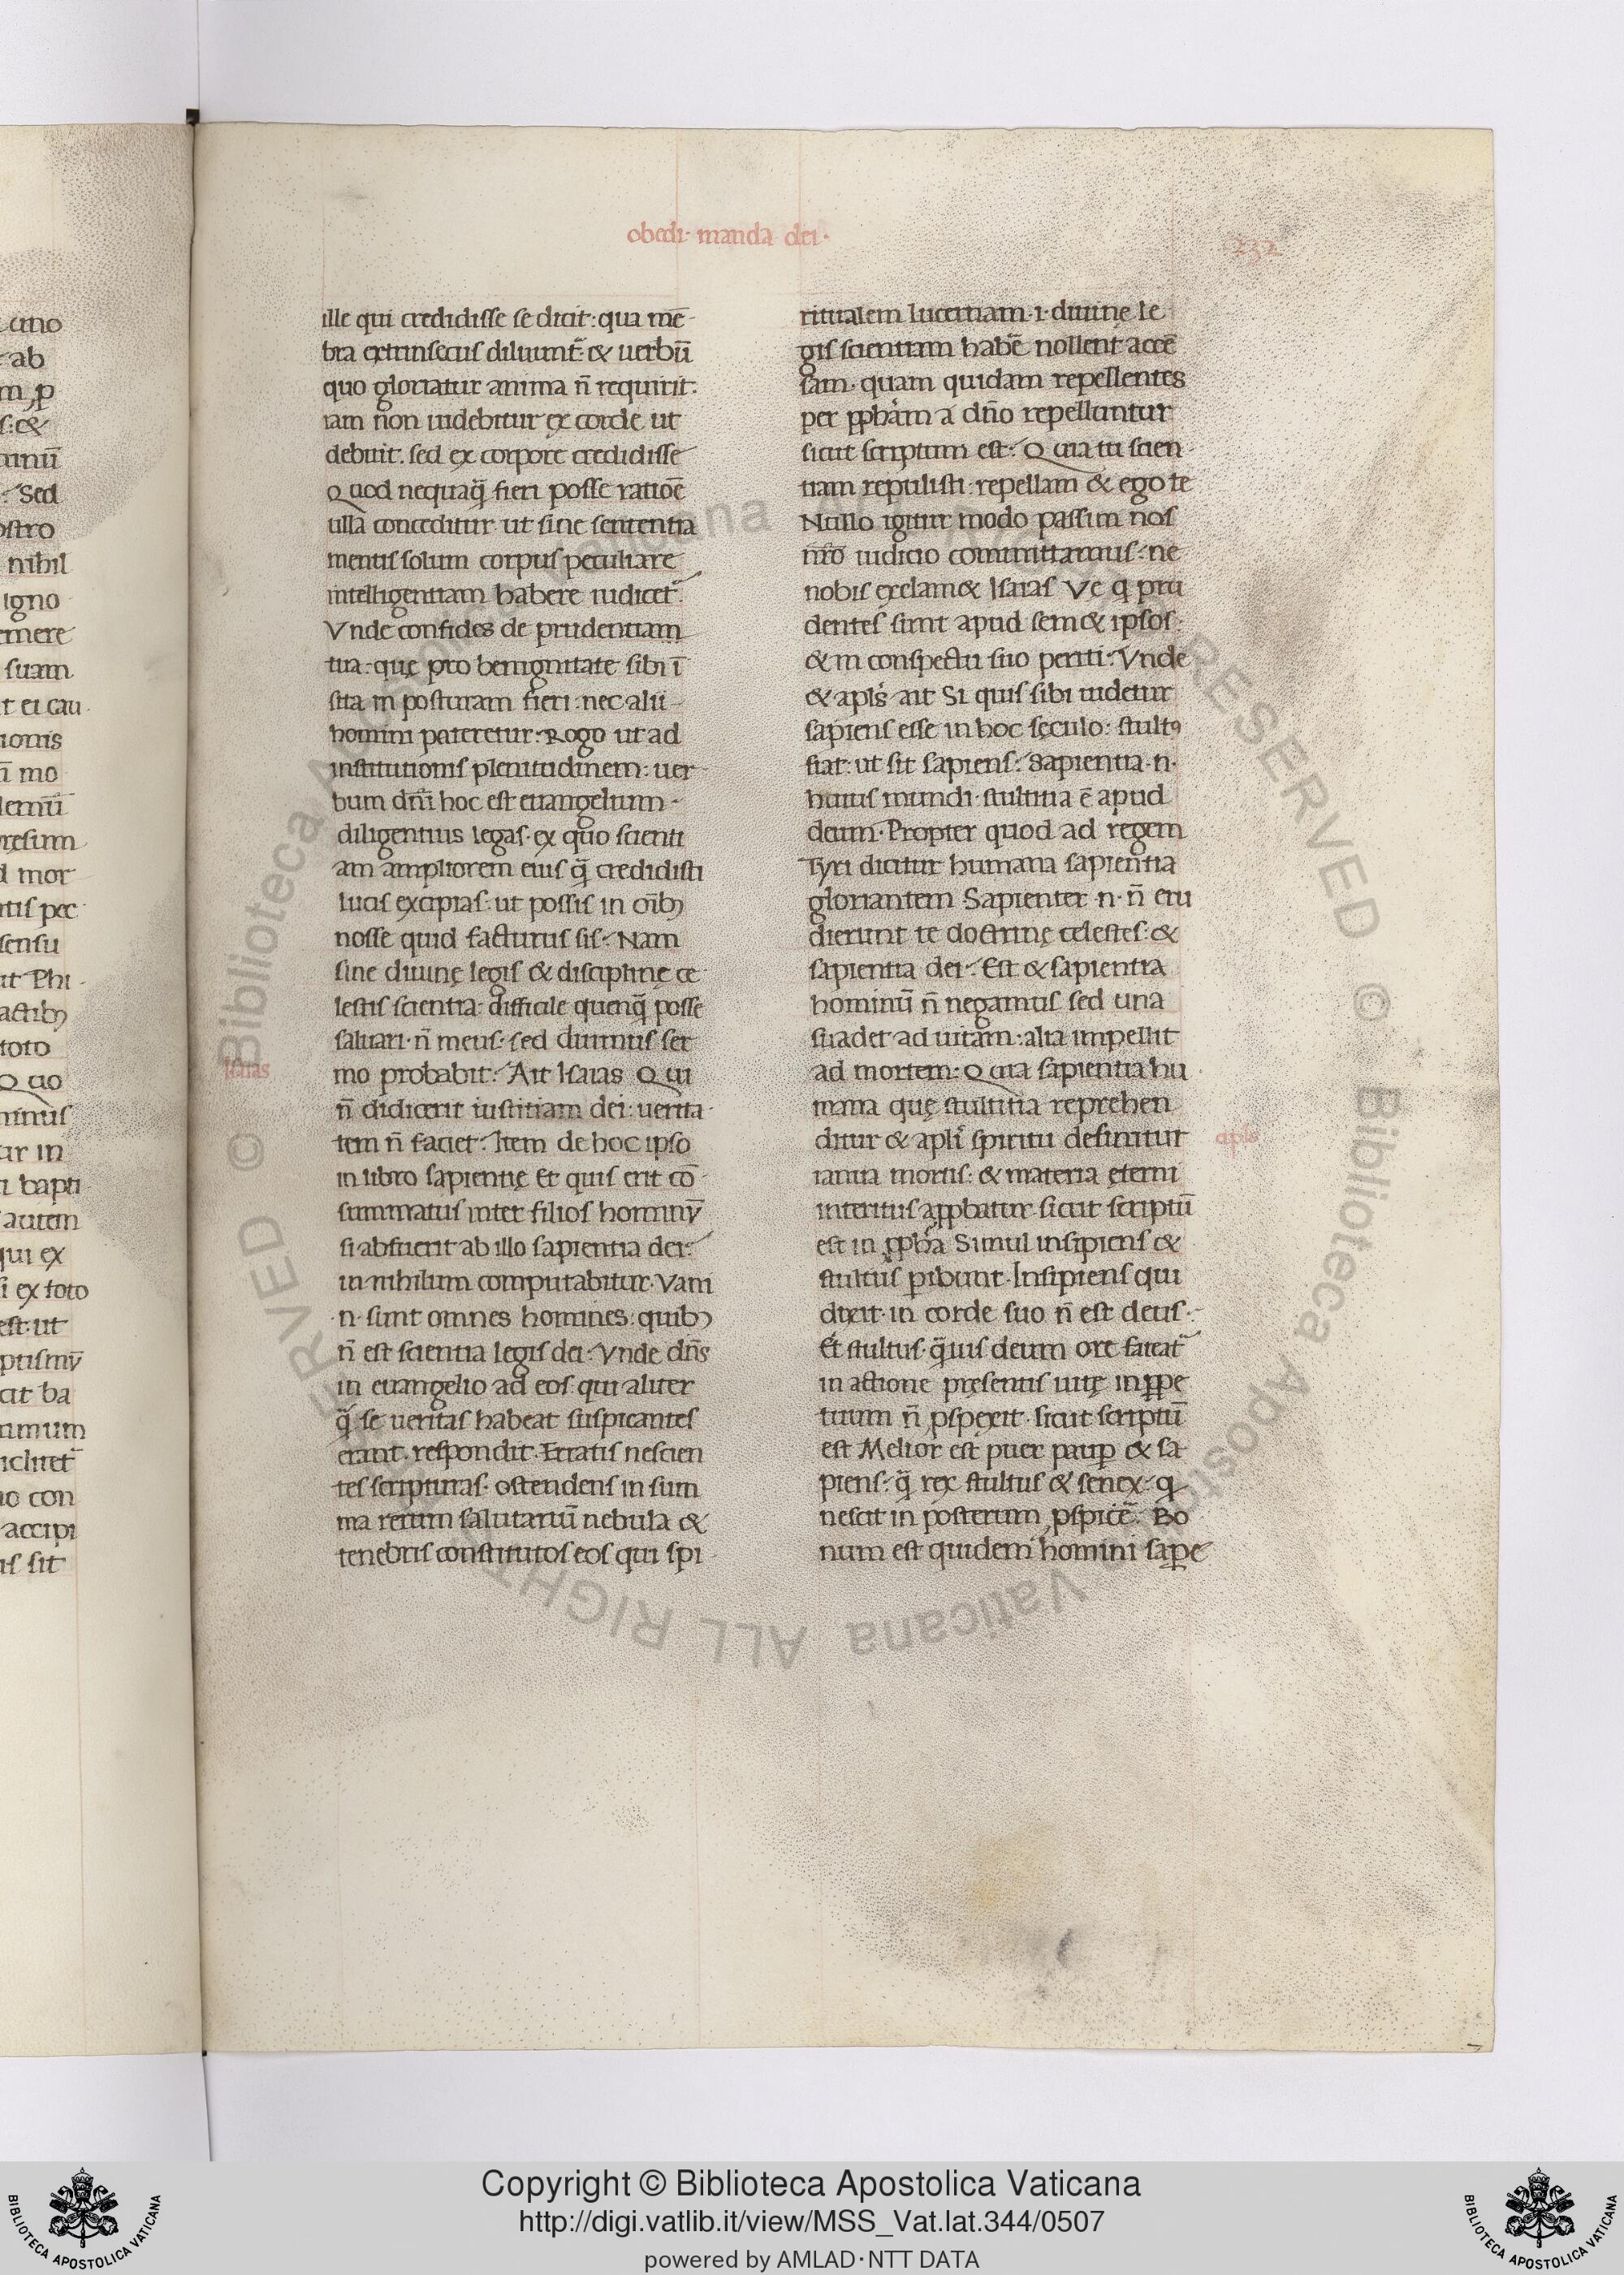 obedi· manda dei·
232
ille qui credidisse se dicit: qua mē
bra extrinsecus diluunt᷑: & uerbū
quo gloriatur anima n̄ requirit:
iam non uidebitur ex corde ut
debuit. sed ex corpore credidisse
Quod nequaq̄ fieri posse ratiōe
ulla conceditur ut sine sententia
mentis solum corpus peculiare
intelligentiam habere iudicet᷑.
Vnde confides de prudentiam
tua: quę pro benignitate sibi ī
sita in posturam fieri: nec alii
homini pateretur: Rogo ut ad
institutionis plenitudinem: uer
bum dn̄i hoc est euangelium
diligentius legas· ex quo scienti
am ampliorem eius q̄ credidisti
lucis excipias: ut possis in om̄ibꝫ
nosse quid facturus sis: Nam
sine diuinę legis & disciplinę ce
lestis scientia: difficile quenq̄ posse
saluari· n̄ meus· sed diuinus ser
mo probabit: Ait Isaias Qui
n̄ didicerit iustitiam dei: uerita
tem n̄ faciet: Item de hoc ipso
in libro sapientię Et quis erit cō
summatus inter filios hominū
si abfuerit ab illo sapientia dei:
in nihilum computabitur· Vani
·n· sunt omnes homines: quibꝫ
n̄ est scientia legis dei: Vnde dn̄s
in euangelio ad eos qui aliter
q̄ se ueritas habeat suspicantes
erant· respondit· Erratis nescien
tes scripturas· ostendens in sum
ma rerum salutariū nebula &
tenebris constitutos eos qui spi
Isaias
ritualem lucernam ·i· diuinę le
gis scientiam habē nollent accē
sam· quam quidam repellentes
per ꝓpham a dn̄o repelluntur
sicut scriptum est: Quia tu scien
tiam repulisti: repellam & ego te
Nullo igitur modo passim nos
nr̄o iudicio committamus: ne
nobis exclam& Isaias Ve q̇ pru
dentes sunt apud sem& ipsos:
& in conspectu suo periti: Vnde
& apl̄s ait Si quis sibi uidetur
sapiens esse in hoc sęculo: stultꝰ
fiat: ut sit sapiens: Sapientia ·n·
huius mundi· stultitia ē apud
deum· Propter quod ad regem
Tyri dicitur humana sapientia
gloriantem Sapienter ·n· n̄ eru
dierunt te doctrinę celestes: &
sapientia dei: Est & sapientia
hominū n̄ negamus sed una
suadet ad uitam: alia impellit
ad mortem: Quia sapientia hu
mana quę stultitia reprehen
ditur & apl̄i spiritu definitur
ianua mortis: & materia ęterni
interitus aꝓbatur sicut scriptū
est in ꝓpha Simul insipiens &
stultus ꝑibunt· Insipiens qui
dixit· in corde suo n̄ est deus·
Et stultus· q̄uis deum ore fateat᷑
in actione pręsentis uitę in ꝑpe
tuum n̄ ꝓspexit· sicut scriptū
est Melior est puer pauꝑ & sa
piens: q̄ rex stultus & senex: q̇
nescit in posterum ꝓspicē: Bo
num est quidem homini saꝑe
apl̄s
Copyright © Biblioteca Apostolica Vaticana
http://digi.vatlib.it/view/MSS_Vat.lat.344/0507
powered by AMLAD·NTT DATA